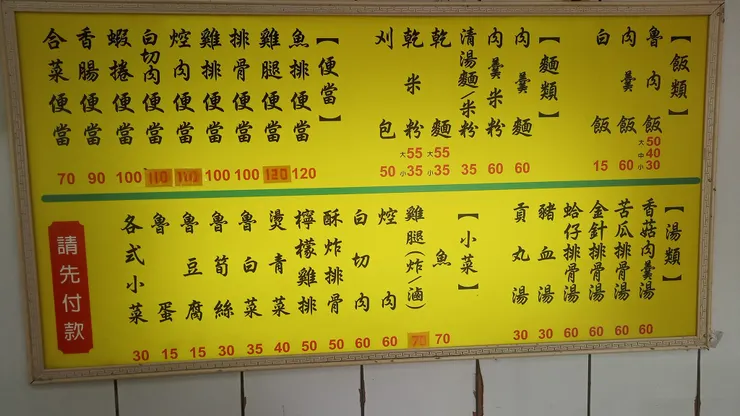 【飯類】
魯肉飯 大50 中40 小30
肉羹飯 60
白飯 15
【麵類】
肉羹麵 60
肉羹米粉 60
清湯麵/米粉 35
乾麵 大55 小35
乾米粉 大55 小35
刈包 50
【便當】
魚排便當 120
雞腿便當 120
排骨便當 100
雞排便當 100
焢肉便當 110
白切肉便當 110
蝦捲便當 100
香腸便當 90
合菜便當 70
【湯類】
香菇肉羹湯 60
苦瓜排骨湯 60
金針排骨湯 60
蛤仔排骨湯 60
豬血湯 30
貢丸湯 30
【小菜】
魚 70
雞腿(炸/滷) 70
焢肉 60
白切肉 60
酥炸排骨 50
檸檬雞排 50
燙青菜 40
魯白菜 35
魯筍絲 30
魯豆腐 15
魯蛋 15
各式小菜 30
請先付款